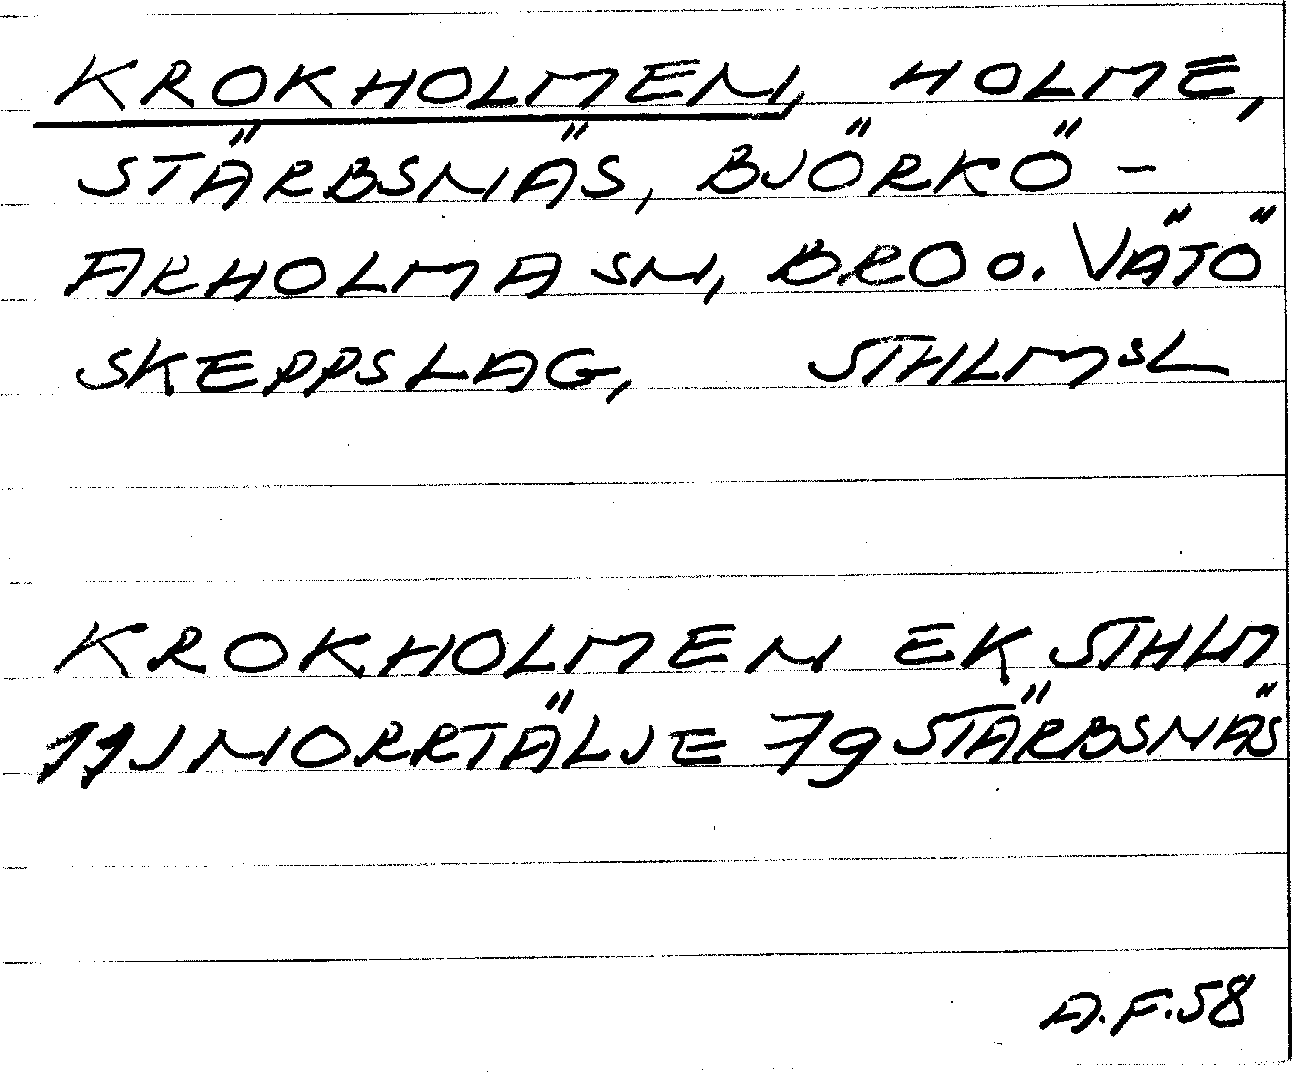 KROKHOLMEN, HOLME,
STÄRBSNÄS, BJÖRKÖ-
ARHOLMA SN, BRO o. VÄTÖ
SKEPPSLAG, STHLMSL
KROKHOLMEN EK STHLM
11J NORRTÄLJE 79 STÄRBSNÄS
A.F.58